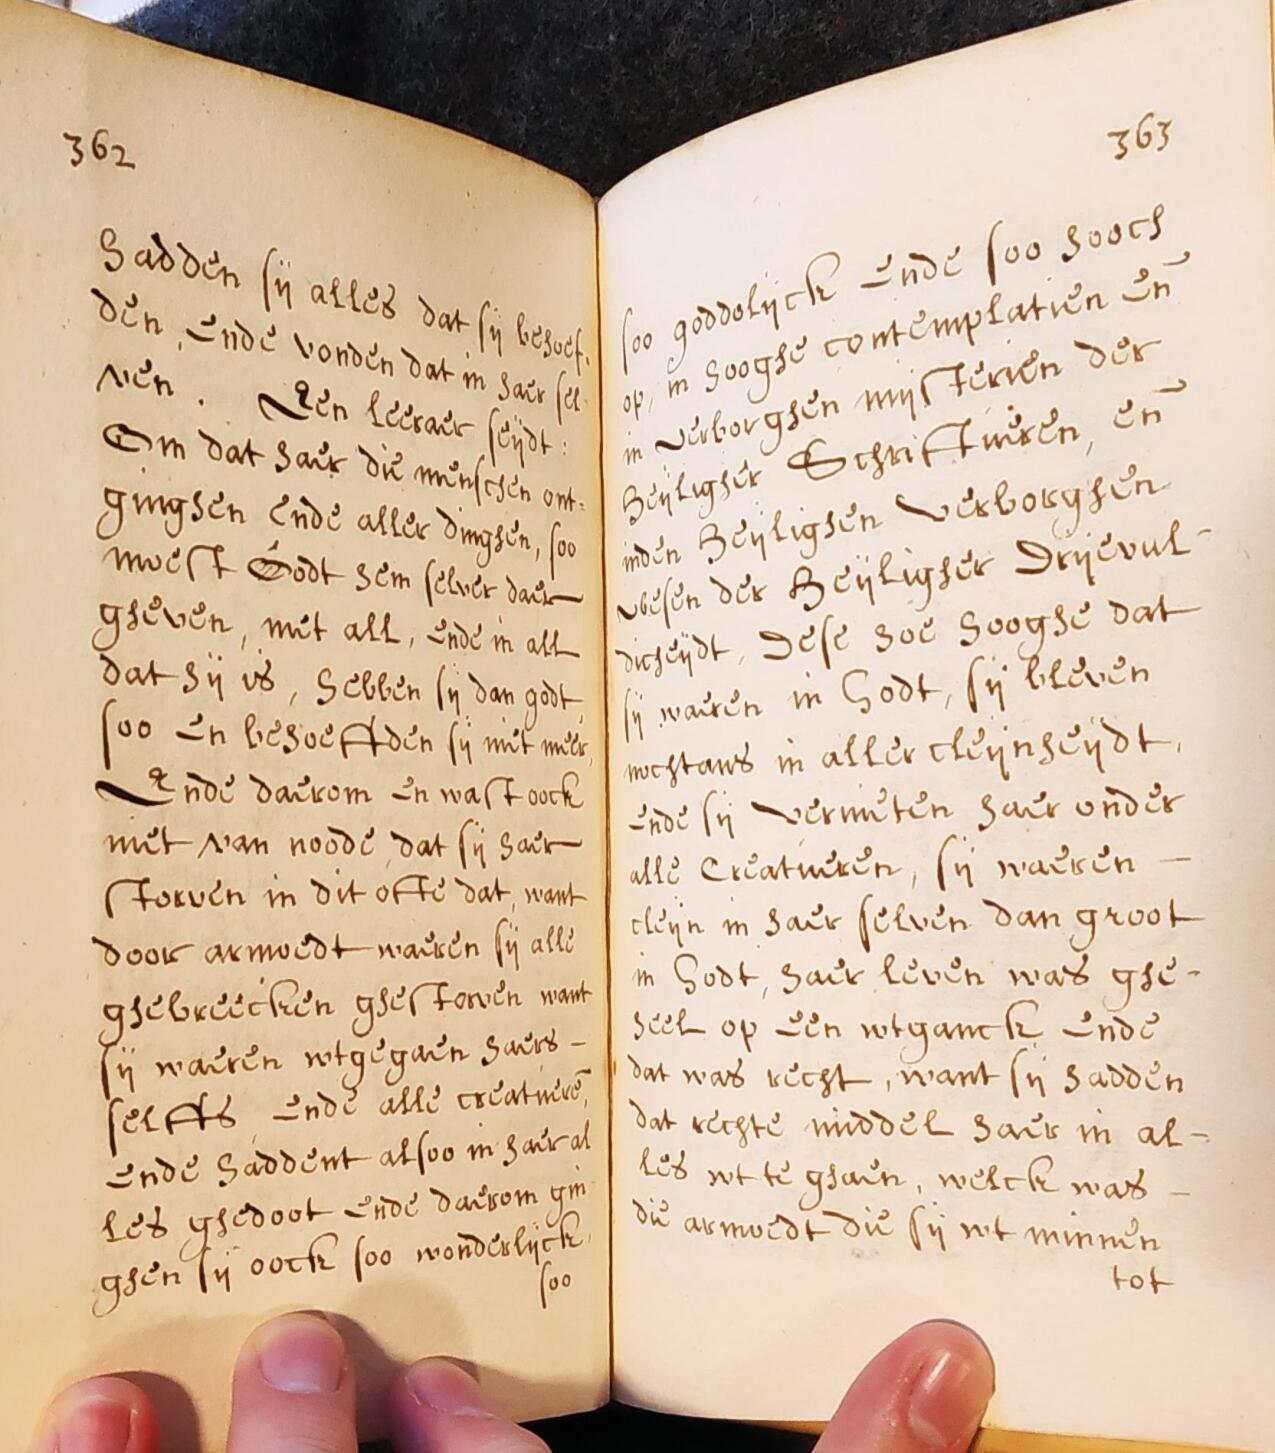 362
hadden sij alles dat sij behoef-
den, ende vonden dat in haer sel-
ven. Een leeraer seijdt:
Om dat haer die menschen ont-
ginghen ende aller dinghen, soo
moest Godt hem selver daer
gheven, met all, ende in all
dat hij is, hebben sij dan godt,
soo en behoefften sij niet meer,
Ende daerom en wast oock
niet van noode dat sij haer
storven in dit ofte dat, want
door armoedt waeren sij alle
ghebreecken ghestorven want
sij waeren wtgegaen haers -
selffs, ende alle creatuerē,
ende haddent alsoo in haer al
les ghedoot ende daerom gin
ghen sij oock soo wonderlijck,
soo
363
soo goddolijck ende soo hooch
op, in hooghe contemplatien eñ
in verborghen mijsterien der
Heijligher Schriftueren, eñ
inden Heijlighen verborghen
wesen der Heijligher Drijevul-
dicheijdt, Dese hoe hooghe dat
sij waeren in Godt, sij bleven
nochtans in aller cleijnheijdt,
ende sij vernieten haer onder
alle Creatueren, sij waeren —
cleijn in haer selven dan groot
in Godt, haer leven was ghe-
heel op een wtganck ende
dat was recht, want sij hadden
dat rechte middel haer in al-
les wt te ghaen, welck was —
die armoedt die sij wt minnen
tot